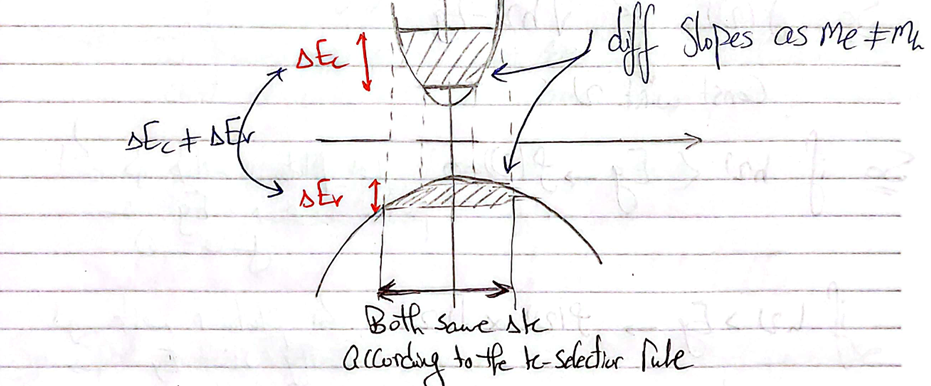 diff slopes as me ≠ mh
ΔEc
ΔEc ≠ ΔEv
ΔEv
Both same Δk
according to the k-selection rule